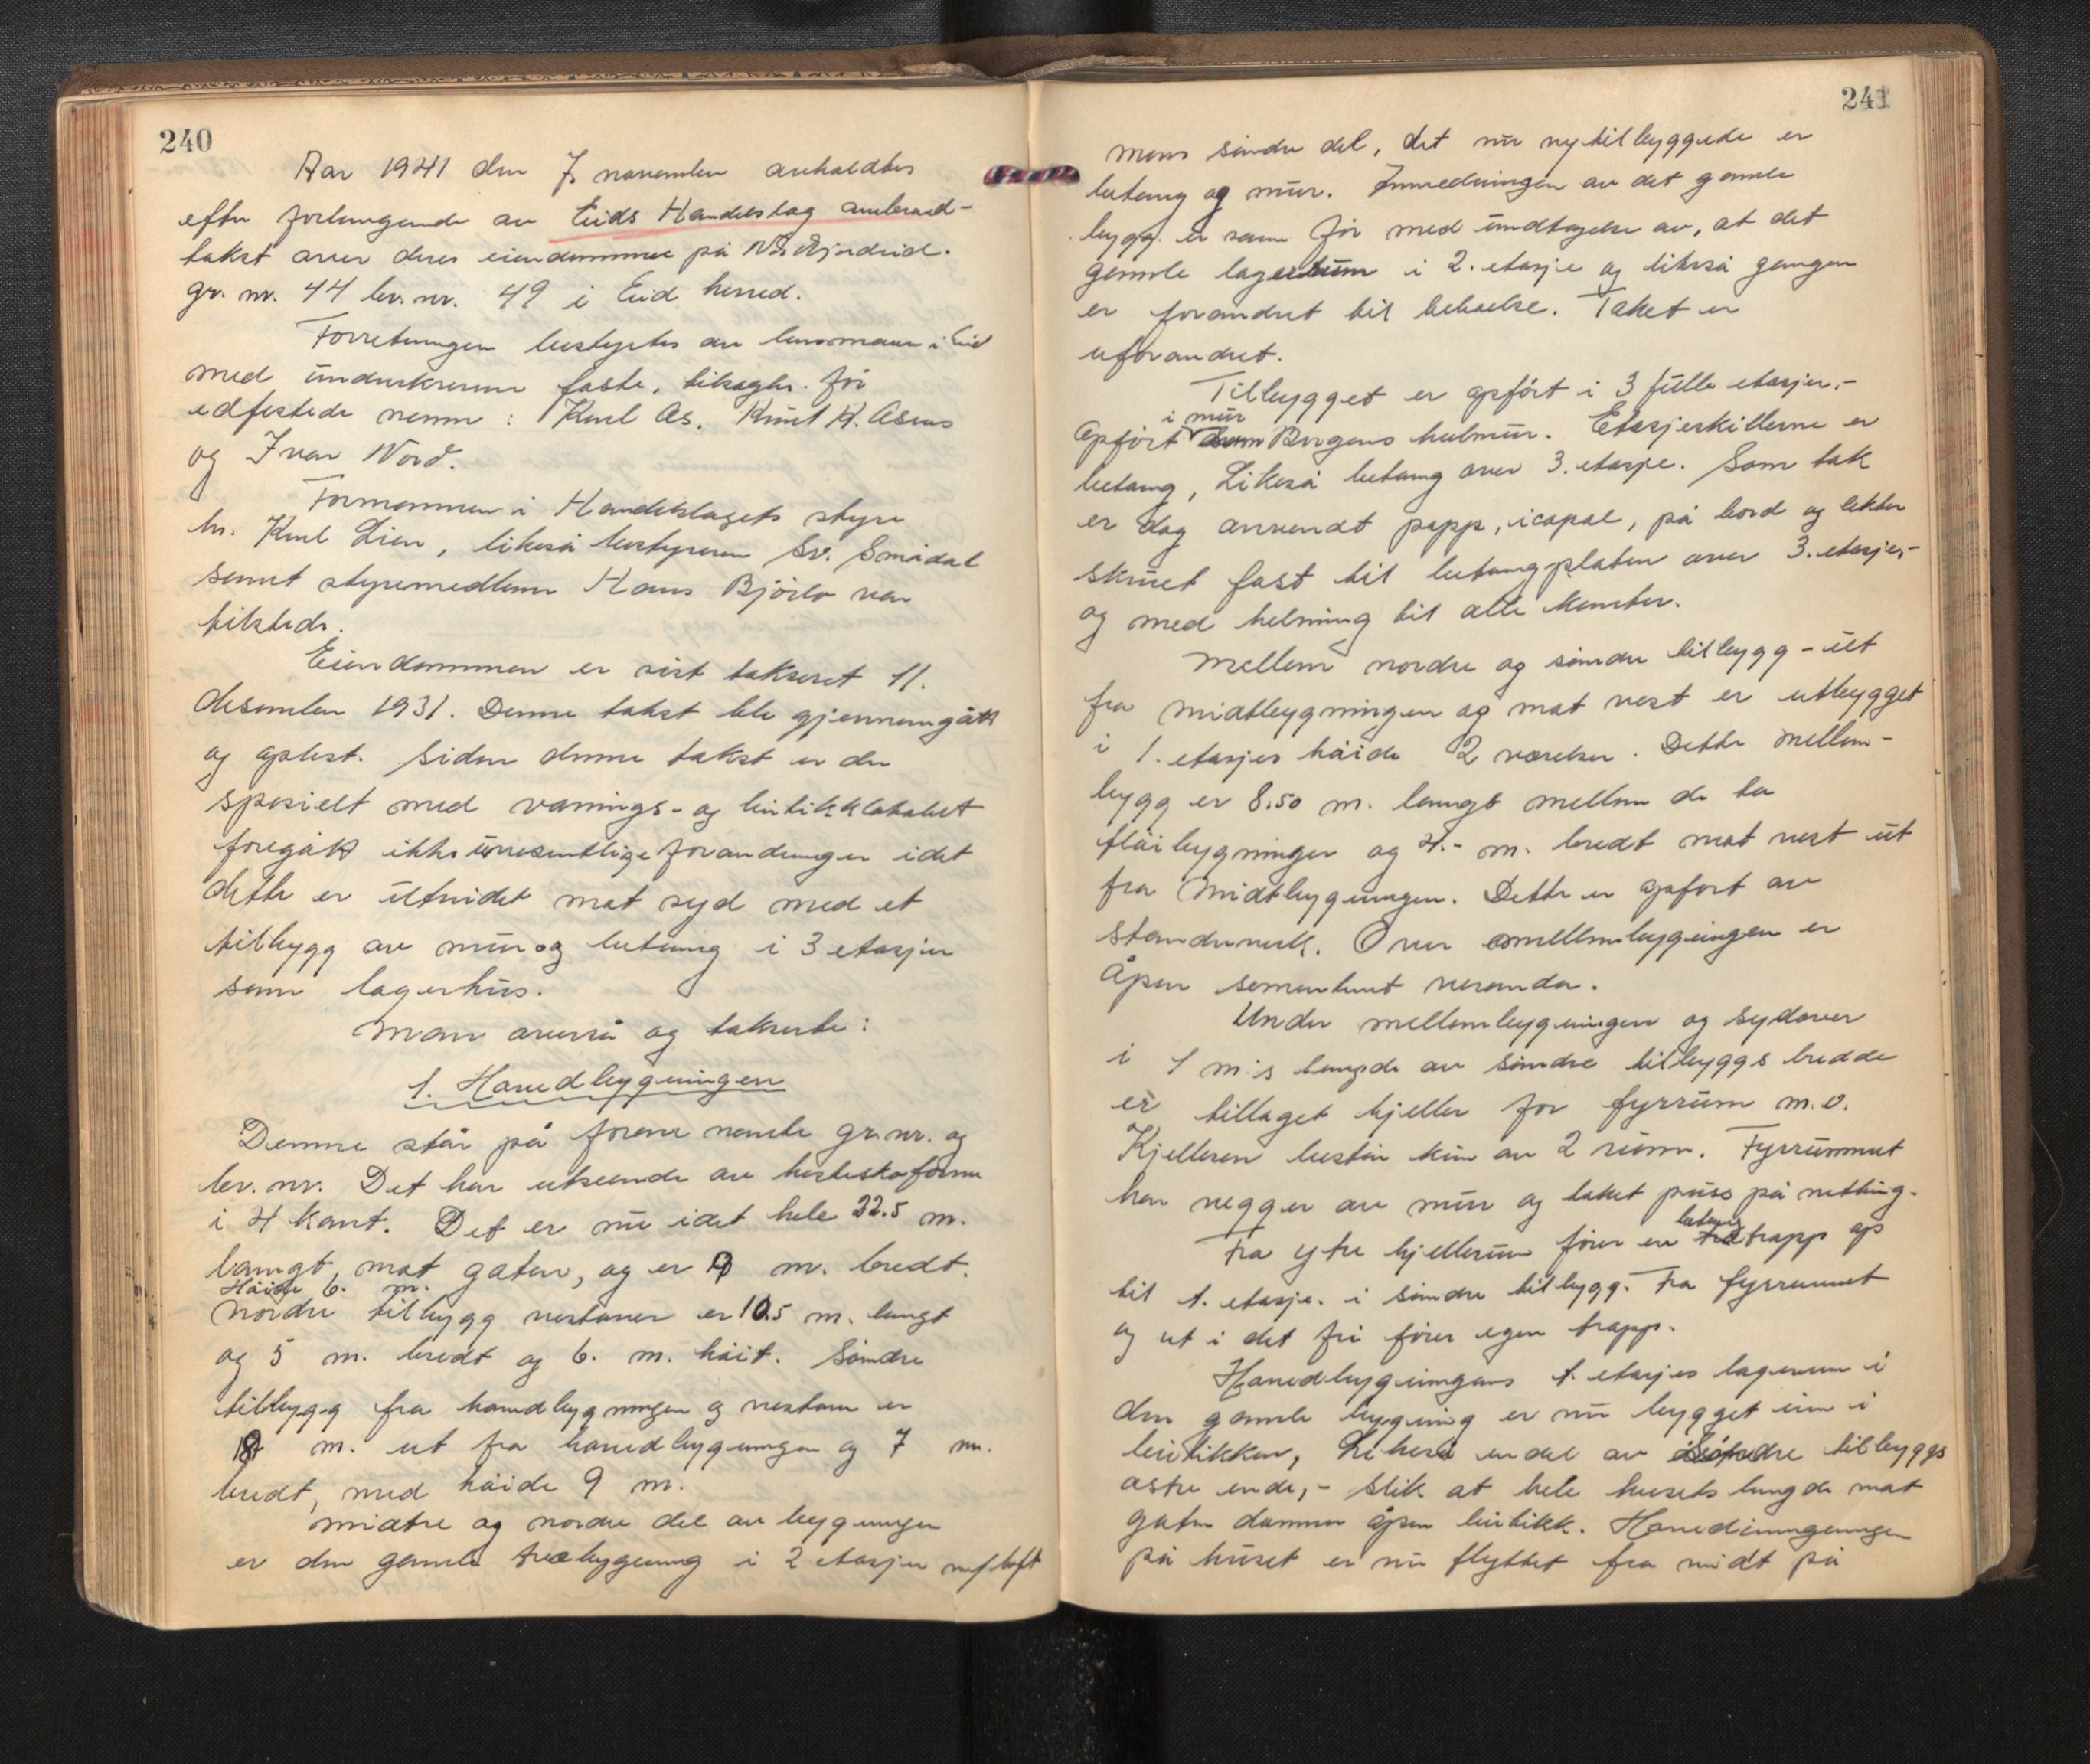 240
Aar 1941 den 7. november avholdtes
efter forlangende av Eids Handelslag ombud-
takst over deres eiendommer på Nordfjordeid.
gr. nr. 44 br. nr. 49 i Eid herred.
Forretningen bestyrtes av lensmann i Eid
med underskrevne faste, tilsagte. før
edfestede menn: Karl Os. Knut K. Asens
og Ivar Nord.
Formannen i Handelslagets styre
hr. Karl Lien, likeså bestyreren Sv. Smådal
samt styremedlem Hans Bjørlo var
tilstede.
Eiendommen er sist taksert 11.
desember 1931. Denne takst ble gjennemgått
og oplest. Siden denne takst er der
spesielt med vanings- og butikklokalet
foregått ikke uvesentlige forandringer idet
dette er utvidet mot syd med et
tilbygg av mur og betong i 3 etasjer
som lagerhus.
Man overså og takserte:
1. Hovedbygningen
Denne står på foran nevnte gr. nr. og
br. nr. Det har utseende av hesteskoform
i 4 kant. Det er nu i det hele 22.5 m.
langt mot gaten, og er 9 m. bredt.
Høide 6. m.
Nordre tilbygg vestover er 10.5 m. langt
og 5 m. bredt og 6. m. høit. Søndre
tilbygg fra hovedbygningen og vestover er
18 m. ut fra hovedbygningen og 7 m.
bredt, med høide 9 m.
Midtre og nordre del av bygningen
er den gamle træbygning i 2 etasjer m/ loft
241
mens søndre del, det nu nytilbyggede er
betong og mur. Innredningen av det gamle
bygg. er som før med undtagelse av, at det
gamle lagerrum i 2. etasje og likeså gangen
er forandret til beboelse. Taket er
uforandret.
Tilbygget er opført i 3 fulle etasjer.-
i mur
Opført som Bergens hulmur. Etasjeskillerne er
betong, Likeså betong over 3. etasje. Som tak
er dog anvendt papp, icopal, på bord og lekter
skruet fast til betongplaten over 3. etasje,-
og med helning til alle kanter.
Mellem nordre og søndre tilbygg - ut
fra midtbygningen og mot vest er utbygget
i 1. etasjes høide 2 værelser. Dette mellem-
bygg er 8.50 m. langt mellem de to
fløibygninger og 4.- m. bredt mot vest ut
fra midtbygningen. Dette er opført av
standerverk. Over mellembygningen er
åpen sementert veranda.
Under mellembygningen og sydover
i 1 m's lengde av søndre tilbyggs bredde
er tillaget kjeller for fyrrum m.v.
Kjelleren består kun av 2 rum. Fyrrummet
har vegger av mur og taket puss på netting.
betong
Fra ytre kjellerum fører en tretrapp op
til 1. etasje. i søndre tilbygg. Fra fyrrummet
og ut i det fri fører egen trapp.
Hovedbygningens 1. etasjes lagerrum i
den gamle bygning er nu bygget inn i
butikken, Likeså en del av søndre tilbyggs
østre ende,- slik at hele husets lengde mot
gaten danner åpen butikk. Hovedinngangen
på huset er nu flyttet fra midt på